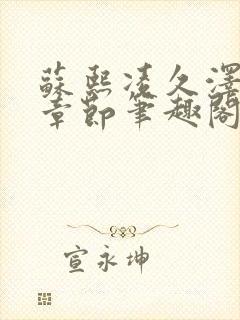 蘇熙凌久澤
章節筆趣閣
宣永坤